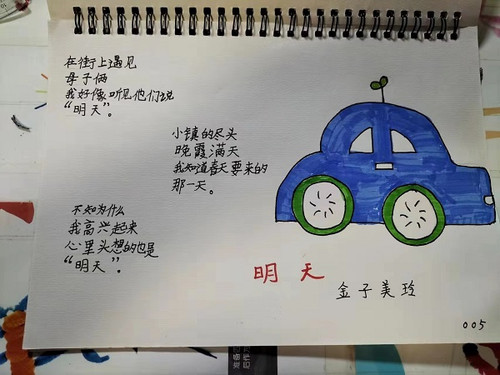 在街上遇见
母子俩
我好像听见他们说
“明天”。
小镇的尽头
晚霞满天
我知道春天要来的
那一天。
不知为什么
我高兴起来
心里头想的也是
“明天”。
明天
金子美玲
005